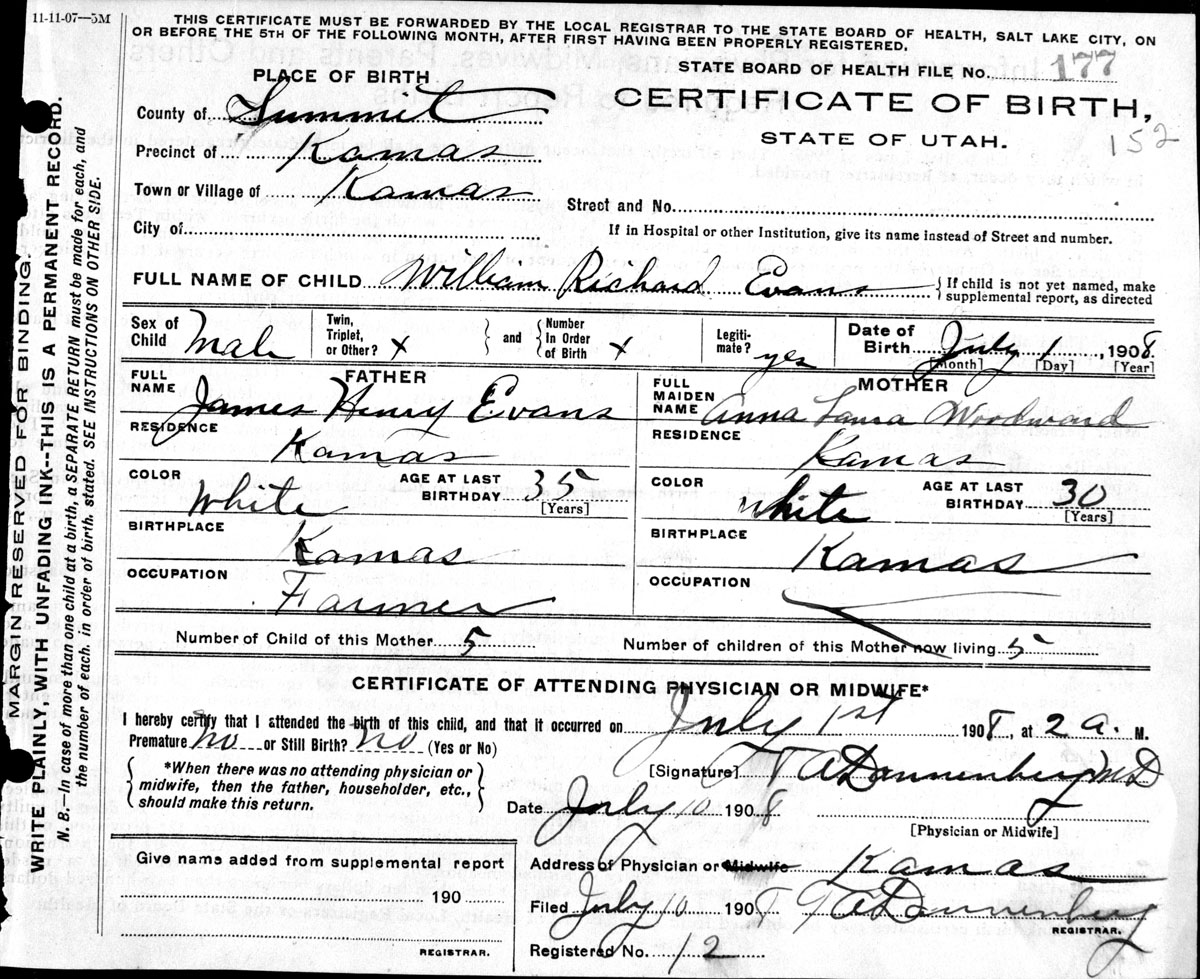 11-11-07—5M
THIS CERTIFICATE MUST BE FORWARDED BY THE LOCAL REGISTRAR TO THE STATE BOARD OF HEALTH, SALT LAKE CITY, ON
OR BEFORE THE 5TH OF THE FOLLOWING MONTH, AFTER FIRST HAVING BEEN PROPERLY REGISTERED.
STATE BOARD OF HEALTH FILE No. 177
PLACE OF BIRTH
CERTIFICATE OF BIRTH,
STATE OF UTAH.
152
County of Summit
Precinct of Kamas
Town or Village of Kamas
Street and No.
City of
If in Hospital or other Institution, give its name instead of Street and number.
FULL NAME OF CHILD William Richard Evans { If child is not yet named, make
supplemental report, as directed
Sex of Child Male
Twin, Triplet, or Other? x } and { Number In Order of Birth x
Legiti- mate? yes
Date of Birth July 1, 1908.
[Month] [Day] [Year]
FATHER
FULL NAME James Henry Evans
RESIDENCE Kamas
COLOR White AGE AT LAST BIRTHDAY 35
[Years]
BIRTHPLACE Kamas
OCCUPATION Farmer
MOTHER
FULL MAIDEN NAME Anna Laura Woodward
RESIDENCE Kamas
COLOR White AGE AT LAST BIRTHDAY 30
[Years]
BIRTHPLACE Kamas
OCCUPATION
Number of Child of this Mother 5 Number of children of this Mother now living 5
CERTIFICATE OF ATTENDING PHYSICIAN OR MIDWIFE*
I hereby certify that I attended the birth of this child, and that it occurred on July 1st 1908, at 2 a. M.
Premature no or Still Birth? no (Yes or No)
{ *When there was no attending physician or
midwife, then the father, householder, etc.,
should make this return. }
[Signature] Dannenberg MD
Date July 10 1908
[Physician or Midwife]
Give name added from supplemental report
190
REGISTRAR.
Address of Physician or Midwife Kamas
Filed July 10 1908 Dannenberg
REGISTRAR.
Registered No. 12
MARGIN RESERVED FOR BINDING.
WRITE PLAINLY, WITH UNFADING INK--THIS IS A PERMANENT RECORD.
N. B.—In case of more than one child at a birth, a SEPARATE RETURN must be made for each, and
the number of each, in order of birth, stated. SEE INSTRUCTIONS ON OTHER SIDE.